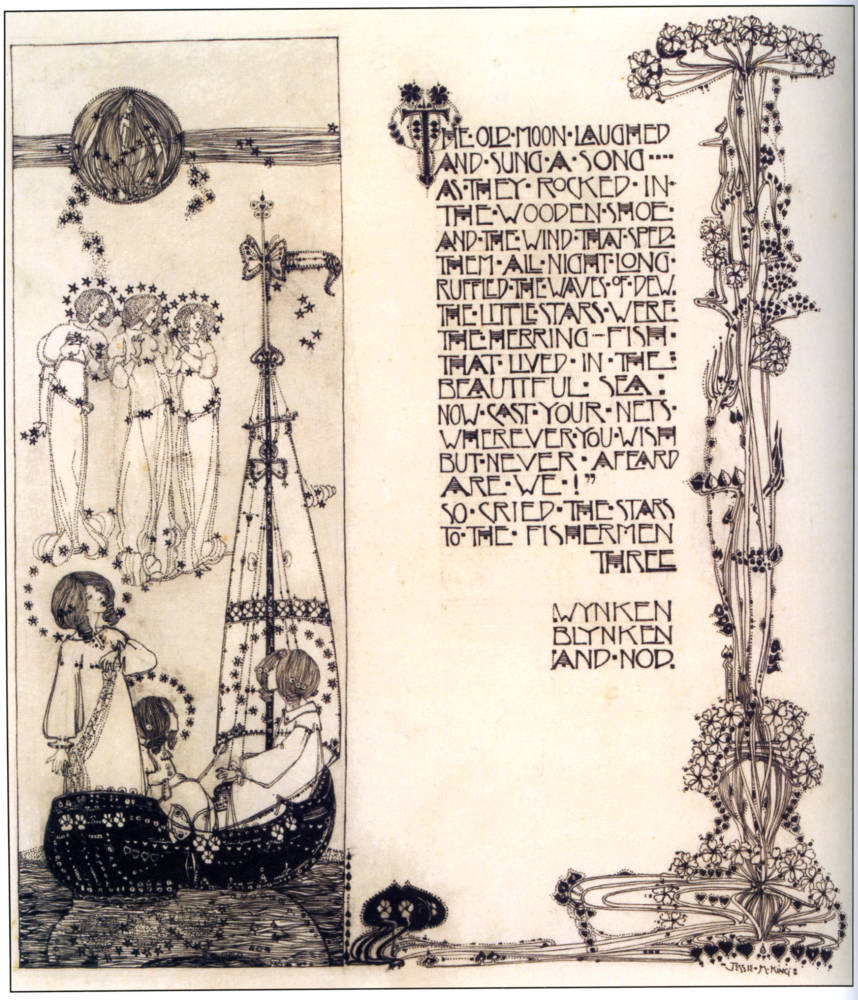 THE·OLD·MOON·LAUGHED
AND·SUNG·A·SONG····
AS·THEY·ROCKED·IN·
THE·WOODEN·SHOE·
AND·THE·WIND·THAT·SPED·
THEM·ALL·NIGHT·LONG·
RUFFLED·THE·WAVES·OF·DEW.
THE·LITTLE·STARS·WERE·
THE·HERRING-FISH·
THAT·LIVED·IN·THE:
BEAUTIFUL·SEA:
NOW·CAST·YOUR·NETS·
WHEREVER·YOU·WISH
BUT·NEVER·AFEARD
ARE·WE·!"
SO·CRIED·THE·STARS
TO·THE·FISHERMEN
THREE
WYNKEN
BLYNKEN
AND·NOD.
JESSIE·M·KING: